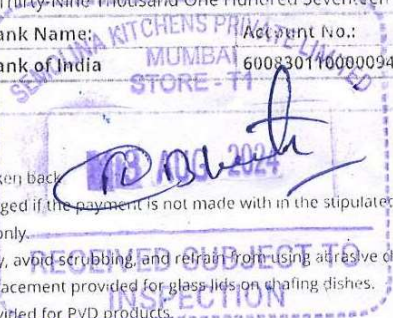 Thirty-Nine Thousand One Hundred Seventeen
ank Name: Account No.:
ank of India 60083011000009
SEMOLINA KITCHENS PRIVATE LIMITED
MUMBAI
STORE - T1
AUG 2024
ken back
ged if the payment is not made with in the stipulated
only.
y, avoid scrubbing, and refrain from using abrasive
RECEIVED SUBJECT TO
acement provided for glass lids on chafing dishes.
INSPECTION
vided for PVD products.